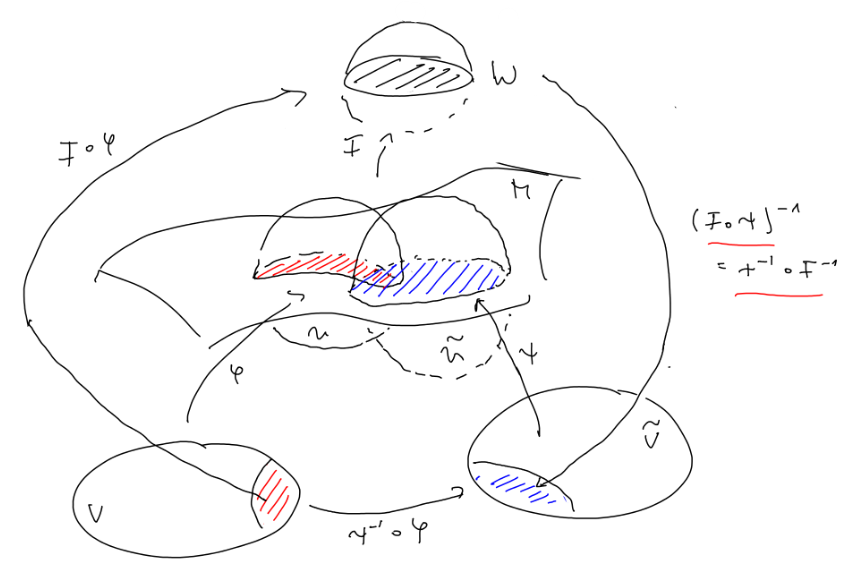 W
F
F∘φ
M
(F∘ψ)⁻¹
= ψ⁻¹∘F⁻¹
u
ũ
φ
ψ
Ṽ
V
ψ⁻¹∘φ